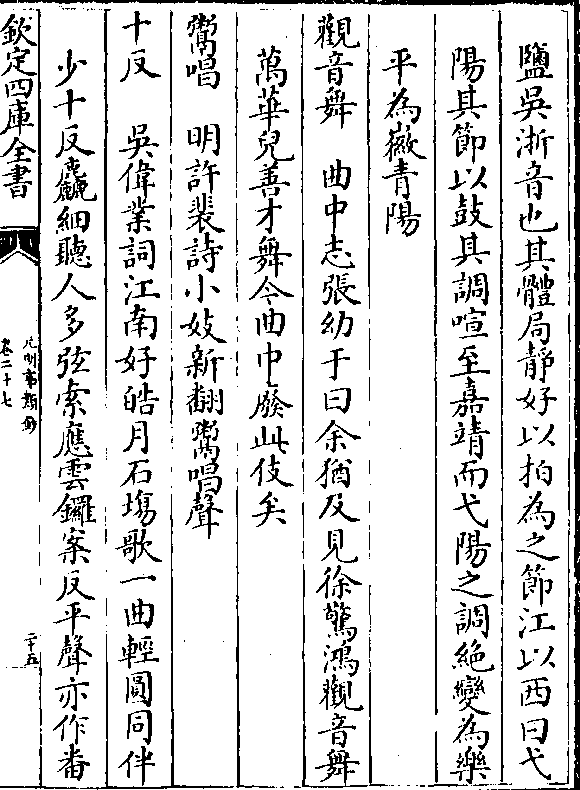 鹽吳浙音也其體局靜好以拍為之節江以西曰弋
陽其節以鼓其調喧至嘉靖而弋陽之調絶變為樂
平為徽青陽
觀音舞　曲中志張幼于曰余猶及見徐驚鴻觀音舞
萬華兒善才舞今曲中廢此伎矣
鸞唱　明許裴詩小妓新翻鸞唱聲
十反　吳偉業詞江南好皓月石塲歌一曲輕圓同伴
少十反麤細聽人多弦索應雲鑼案反平聲亦作番
欽定四庫全書
元明事類鈔
卷二十七
二十五